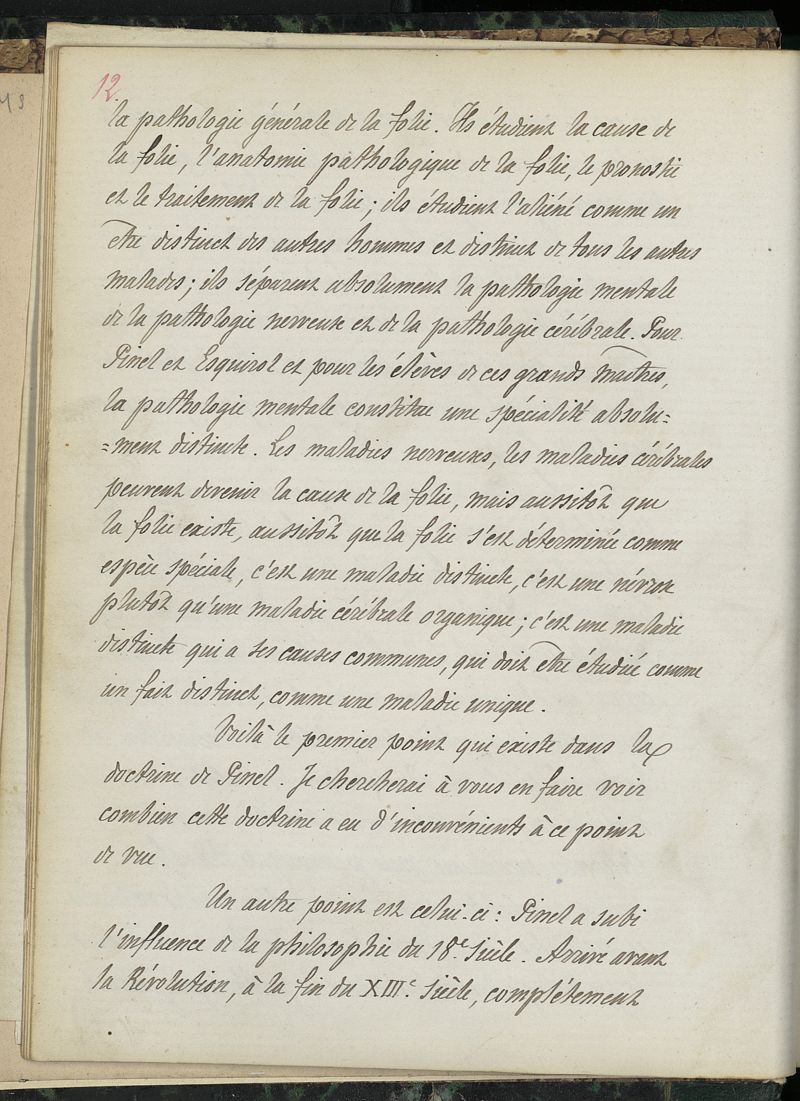 12
la pathologie générale de la folie. Ils étudient la cause de
la folie, l'anatomie pathologique de la folie, le pronostic
et le traitement de la folie; ils étudient l'aliéné comme un
être distinct des autres hommes et distinct de tous les autres
malades; ils séparent absolument la pathologie mentale
de la pathologie nerveuse et de la pathologie cérébrale. Pour
Pinel et Esquirol et pour les élèves de ces grands maîtres,
la pathologie mentale constitue une spécialité absolu=
=ment distincte. Les maladies nerveuses, les maladies cérébrales
peuvent devenir la cause de la folie, mais aussitôt que
la folie existe, aussitôt que la folie s'est déterminée comme
espèce spéciale, c'est une maladie distincte, c'est une névrose
plutôt qu'une maladie cérébrale organique; c'est une maladie
distincte qui a ses causes communes, qui doit être étudiée comme
un fait distinct, comme une maladie unique.
Voilà le premier point qui existe dans la
doctrine de Pinel. Je chercherai à vous en faire voir
combien cette doctrine a eu d'inconvénients à ce point
de vue.
Un autre point est celui-ci: Pinel a subi
l'influence de la philosophie du 18e. Siècle. Arrivé avant
la Révolution, à la fin du XIIIe. Siècle, complétement